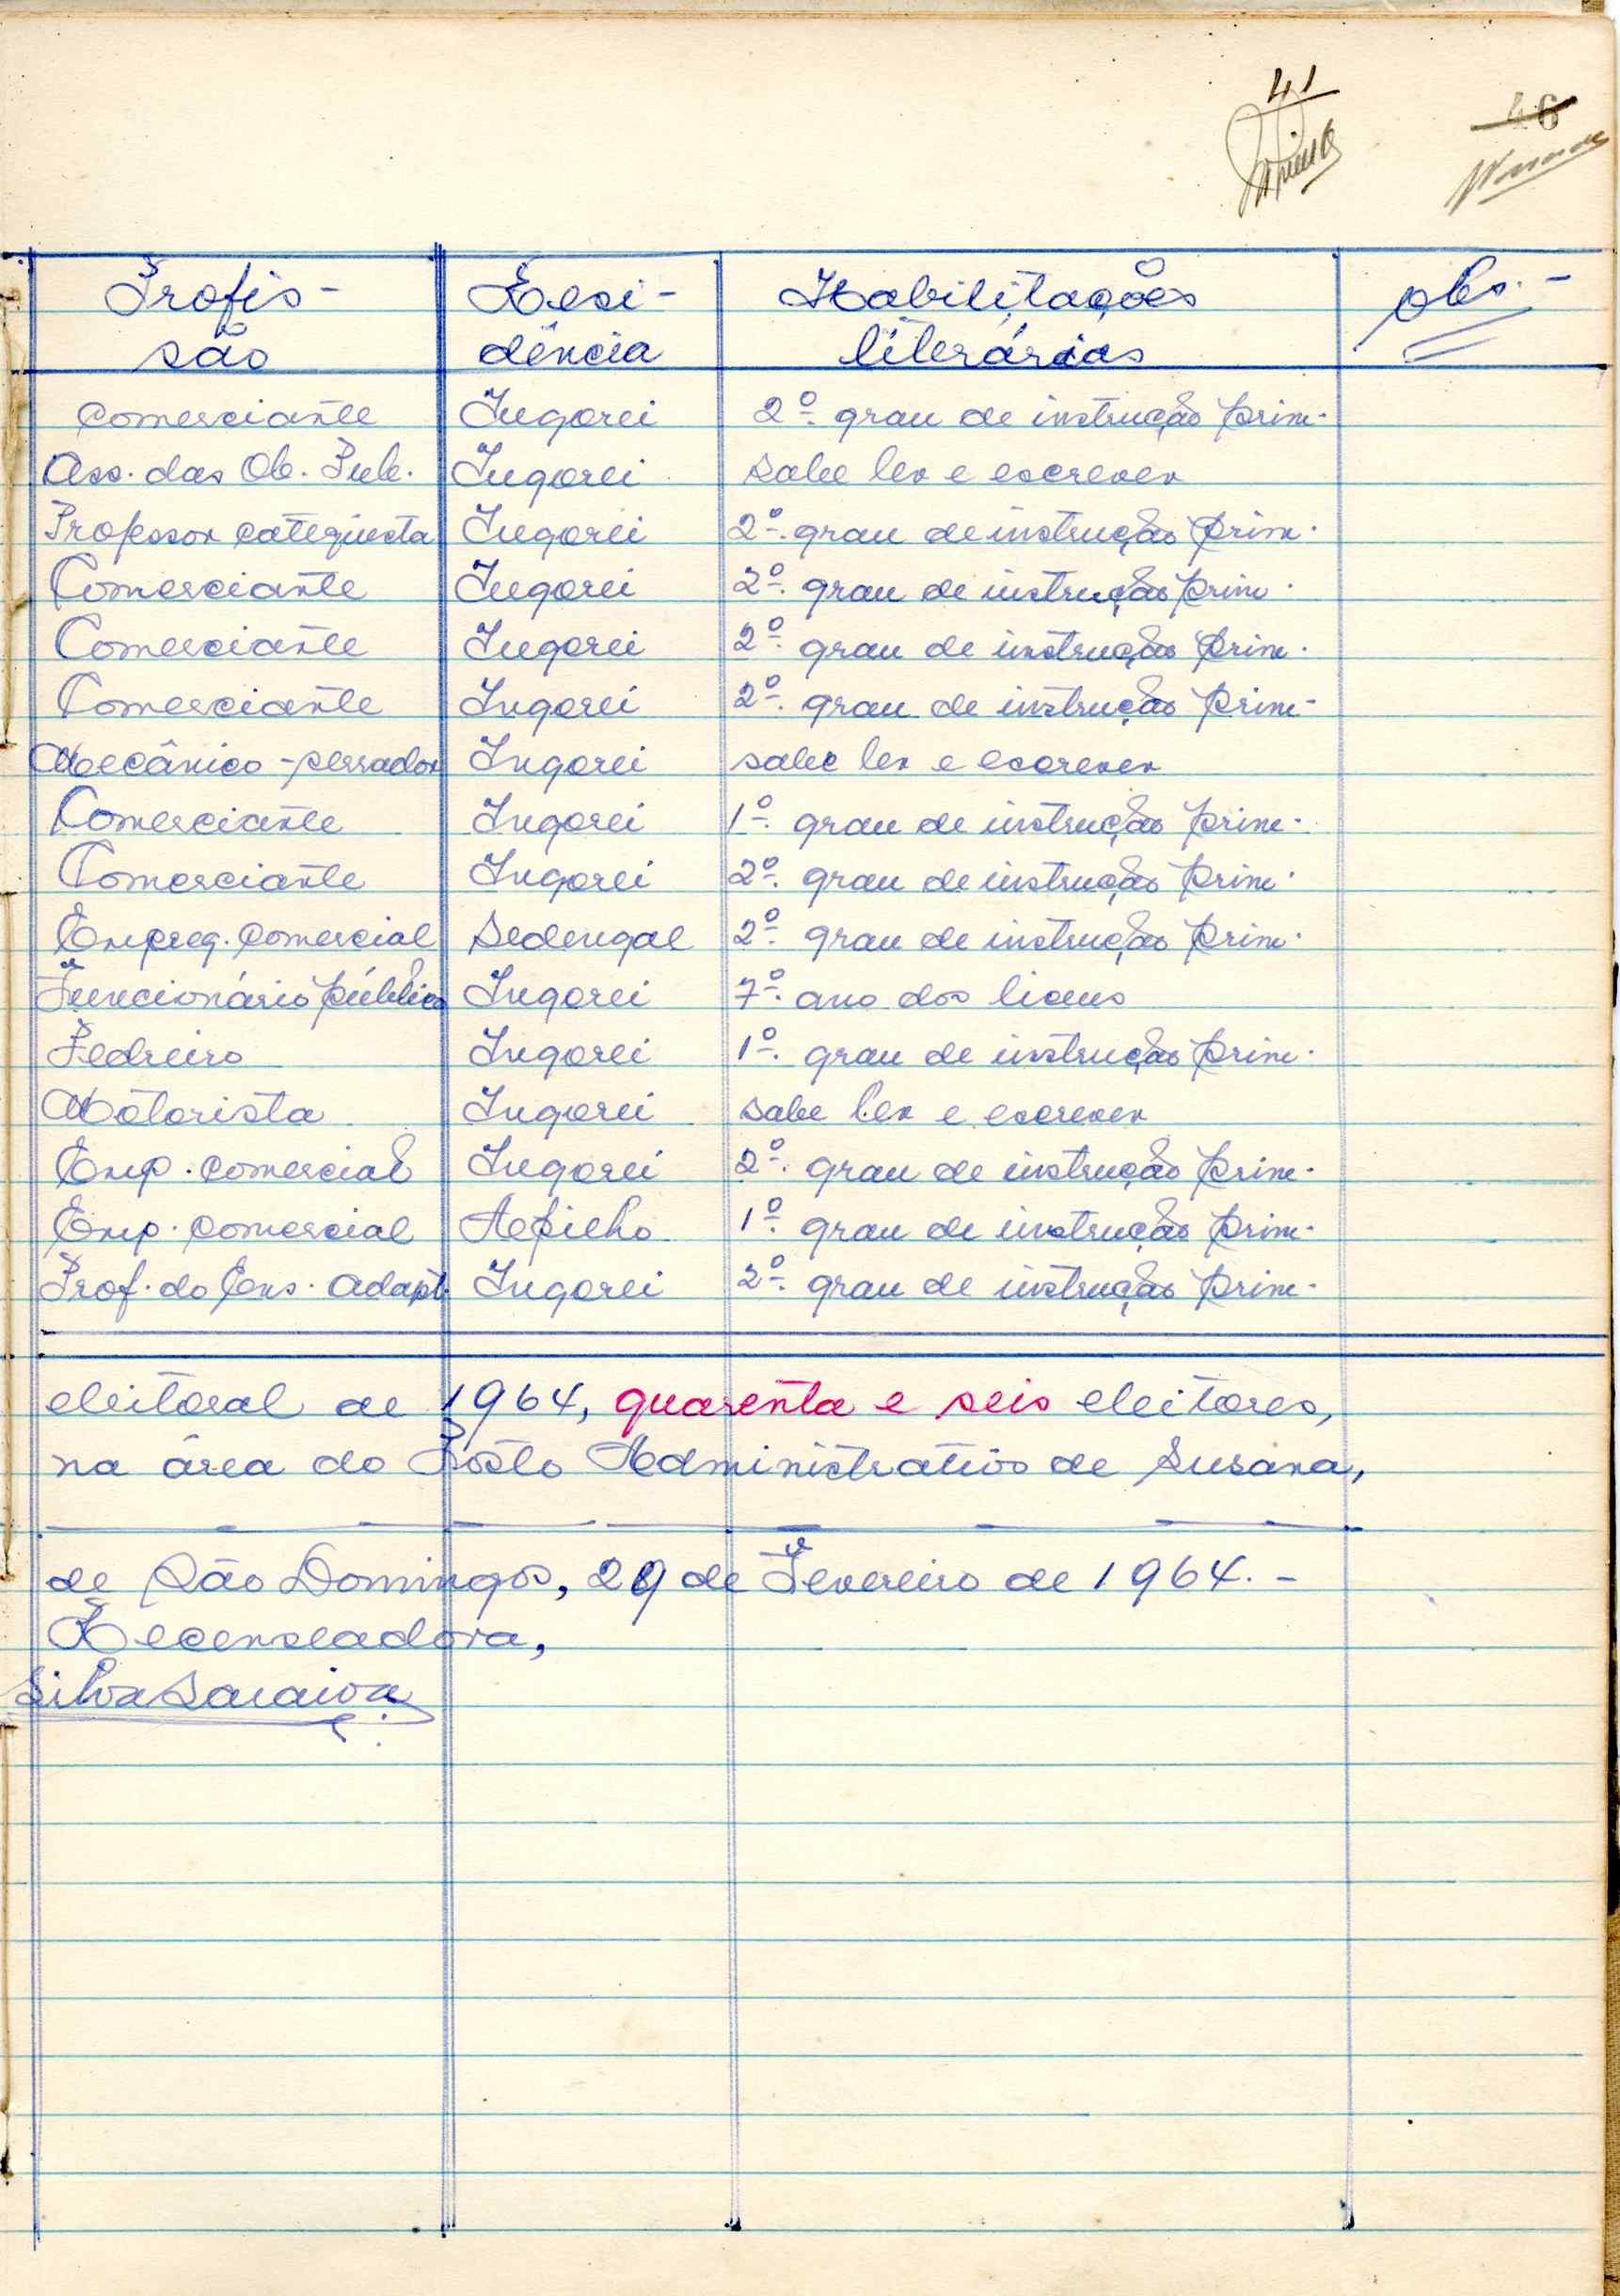 41
46
Profis- Resi- Habilitações obs.-
são dência literárias
Comerciante Ingorei 2º. grau de instrução prim.
Ass. das Ob. Pub. Ingorei sabe ler e escrever
Professor catequista Ingorei 2º. grau de instrução prim.
Comerciante Ingorei 2º. grau de instrução prim.
Comerciante Ingorei 2º. grau de instrução prim.
Comerciante Ingorei 2º. grau de instrução prim.
Mecânico-serrador Ingorei sabe ler e escrever
Comerciante Ingorei 1º. grau de instrução prim.
Comerciante Ingorei 2º. grau de instrução prim.
Empreg. comercial Sedengal 2º. grau de instrução prim.
Funcionário público Ingorei 7º. ano dos liceus
Pedreiro Ingorei 1º. grau de instrução prim.
Motorista Ingorei sabe ler e escrever
Emp. comercial Ingorei 2º. grau de instrução prim.
Emp. comercial Apilho 1º. grau de instrução prim.
Prof. do Ens. Adapt. Ingorei 2º. grau de instrução prim.
eleitoral de 1964, quarenta e seis eleitores,
na área do Posto Administrativo de Susana,
de São Domingos, 29 de Fevereiro de 1964.-
Recenseadora,
Silva Saraiva